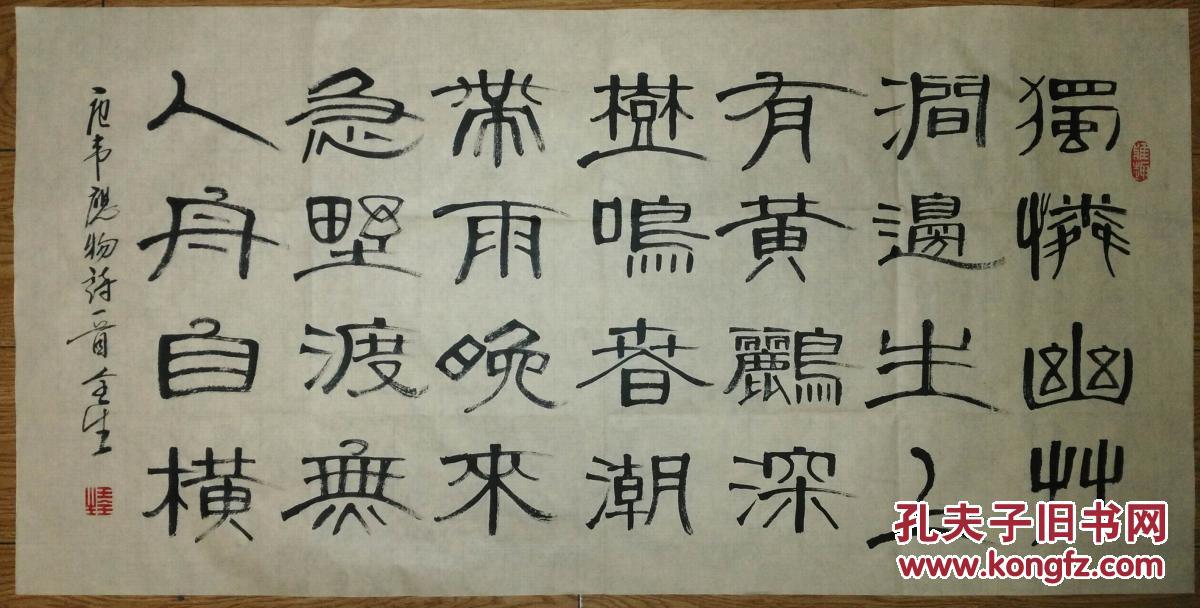 獨憐幽艸
澗邊生上
有黃鸝深
樹鳴春潮
帶雨晚來
急野渡無
人舟自橫
唐韋應物詩一首 全生
孔夫子旧书网
www.kongfz.com